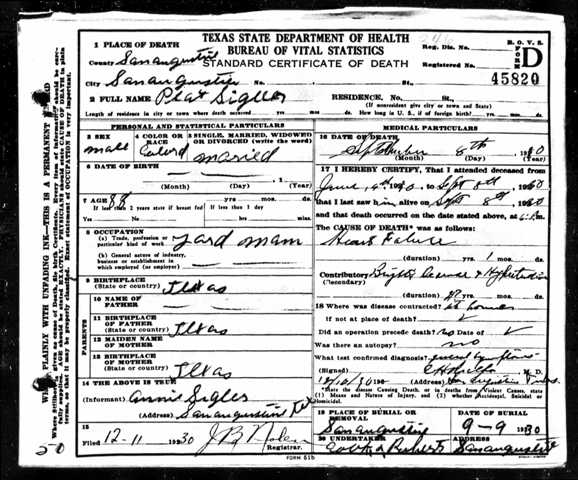 TEXAS STATE DEPARTMENT OF HEALTH
BUREAU OF VITAL STATISTICS
STANDARD CERTIFICATE OF DEATH
B. O. V. S.
D
Reg. Dis. No.
Registered No.
45820
1 PLACE OF DEATH
County San augustine
City San augustine No. St.,
2 FULL NAME Plat Sigler RESIDENCE, No. St.,
(If nonresident give city or town and State)
Length of residence in city or town where death occurred yrs. mos. ds. How long in U. S., if of foreign birth? yrs. mos. ds.
PERSONAL AND STATISTICAL PARTICULARS
3 SEX
male
4 COLOR OR RACE
Colord
5 SINGLE, MARRIED, WIDOWED OR DIVORCED (write the word)
married
6 DATE OF BIRTH
(Month) (Day) (Year)
7 AGE 88 yrs. mos. ds.
If less than 2 years state if breast fed If less than 1 day
Yes No hrs. min.
8 OCCUPATION
(a) Trade, profession or particular kind of work yard mam
(b) General nature of industry, business or establishment in which employed (or employer)
9 BIRTHPLACE
(State or country) Texas
PARENTS
10 NAME OF FATHER
11 BIRTHPLACE OF FATHER
(State or country) Texas
12 MAIDEN NAME OF MOTHER
13 BIRTHPLACE OF MOTHER
(State or country) Texas
14 THE ABOVE IS TRUE
(Informant) annie Sigler
(Address) San augustine Tex
15
Filed 12-11 1930 Registrar.
FORM 51b
MEDICAL PARTICULARS
16 DATE OF DEATH
September 8th 1930
(Month) (Day) (Year)
17 I HEREBY CERTIFY, That I attended deceased
from June 1930, to Sept 8th, 1930
that I last saw him, alive on Sept 8th 1930
and that death occurred on the date stated above, at m.
The CAUSE OF DEATH* was as follows:
Heart Failure
(duration) yrs. 1 mos. ds.
Contributory Brights Disease & Hypertension
(Secondary)
(duration) yrs. mos. ds.
18 Where was disease contracted? at home
If not at place of death?
Did an operation precede death? no Date of
Was there an autopsy? no
What test confirmed diagnosis?
(Signed) M. D.
(Address) San Augustine Texas
*State the Disease Causing Death, or in deaths from Violent Causes, state (1) Means and Nature of Injury, and (2) whether Accidental, Suicidal or Homicidal.
19 PLACE OF BURIAL OR REMOVAL
San augustine
DATE
9-9 1930
20 UNDERTAKER
ADDRESS
San augustine
50